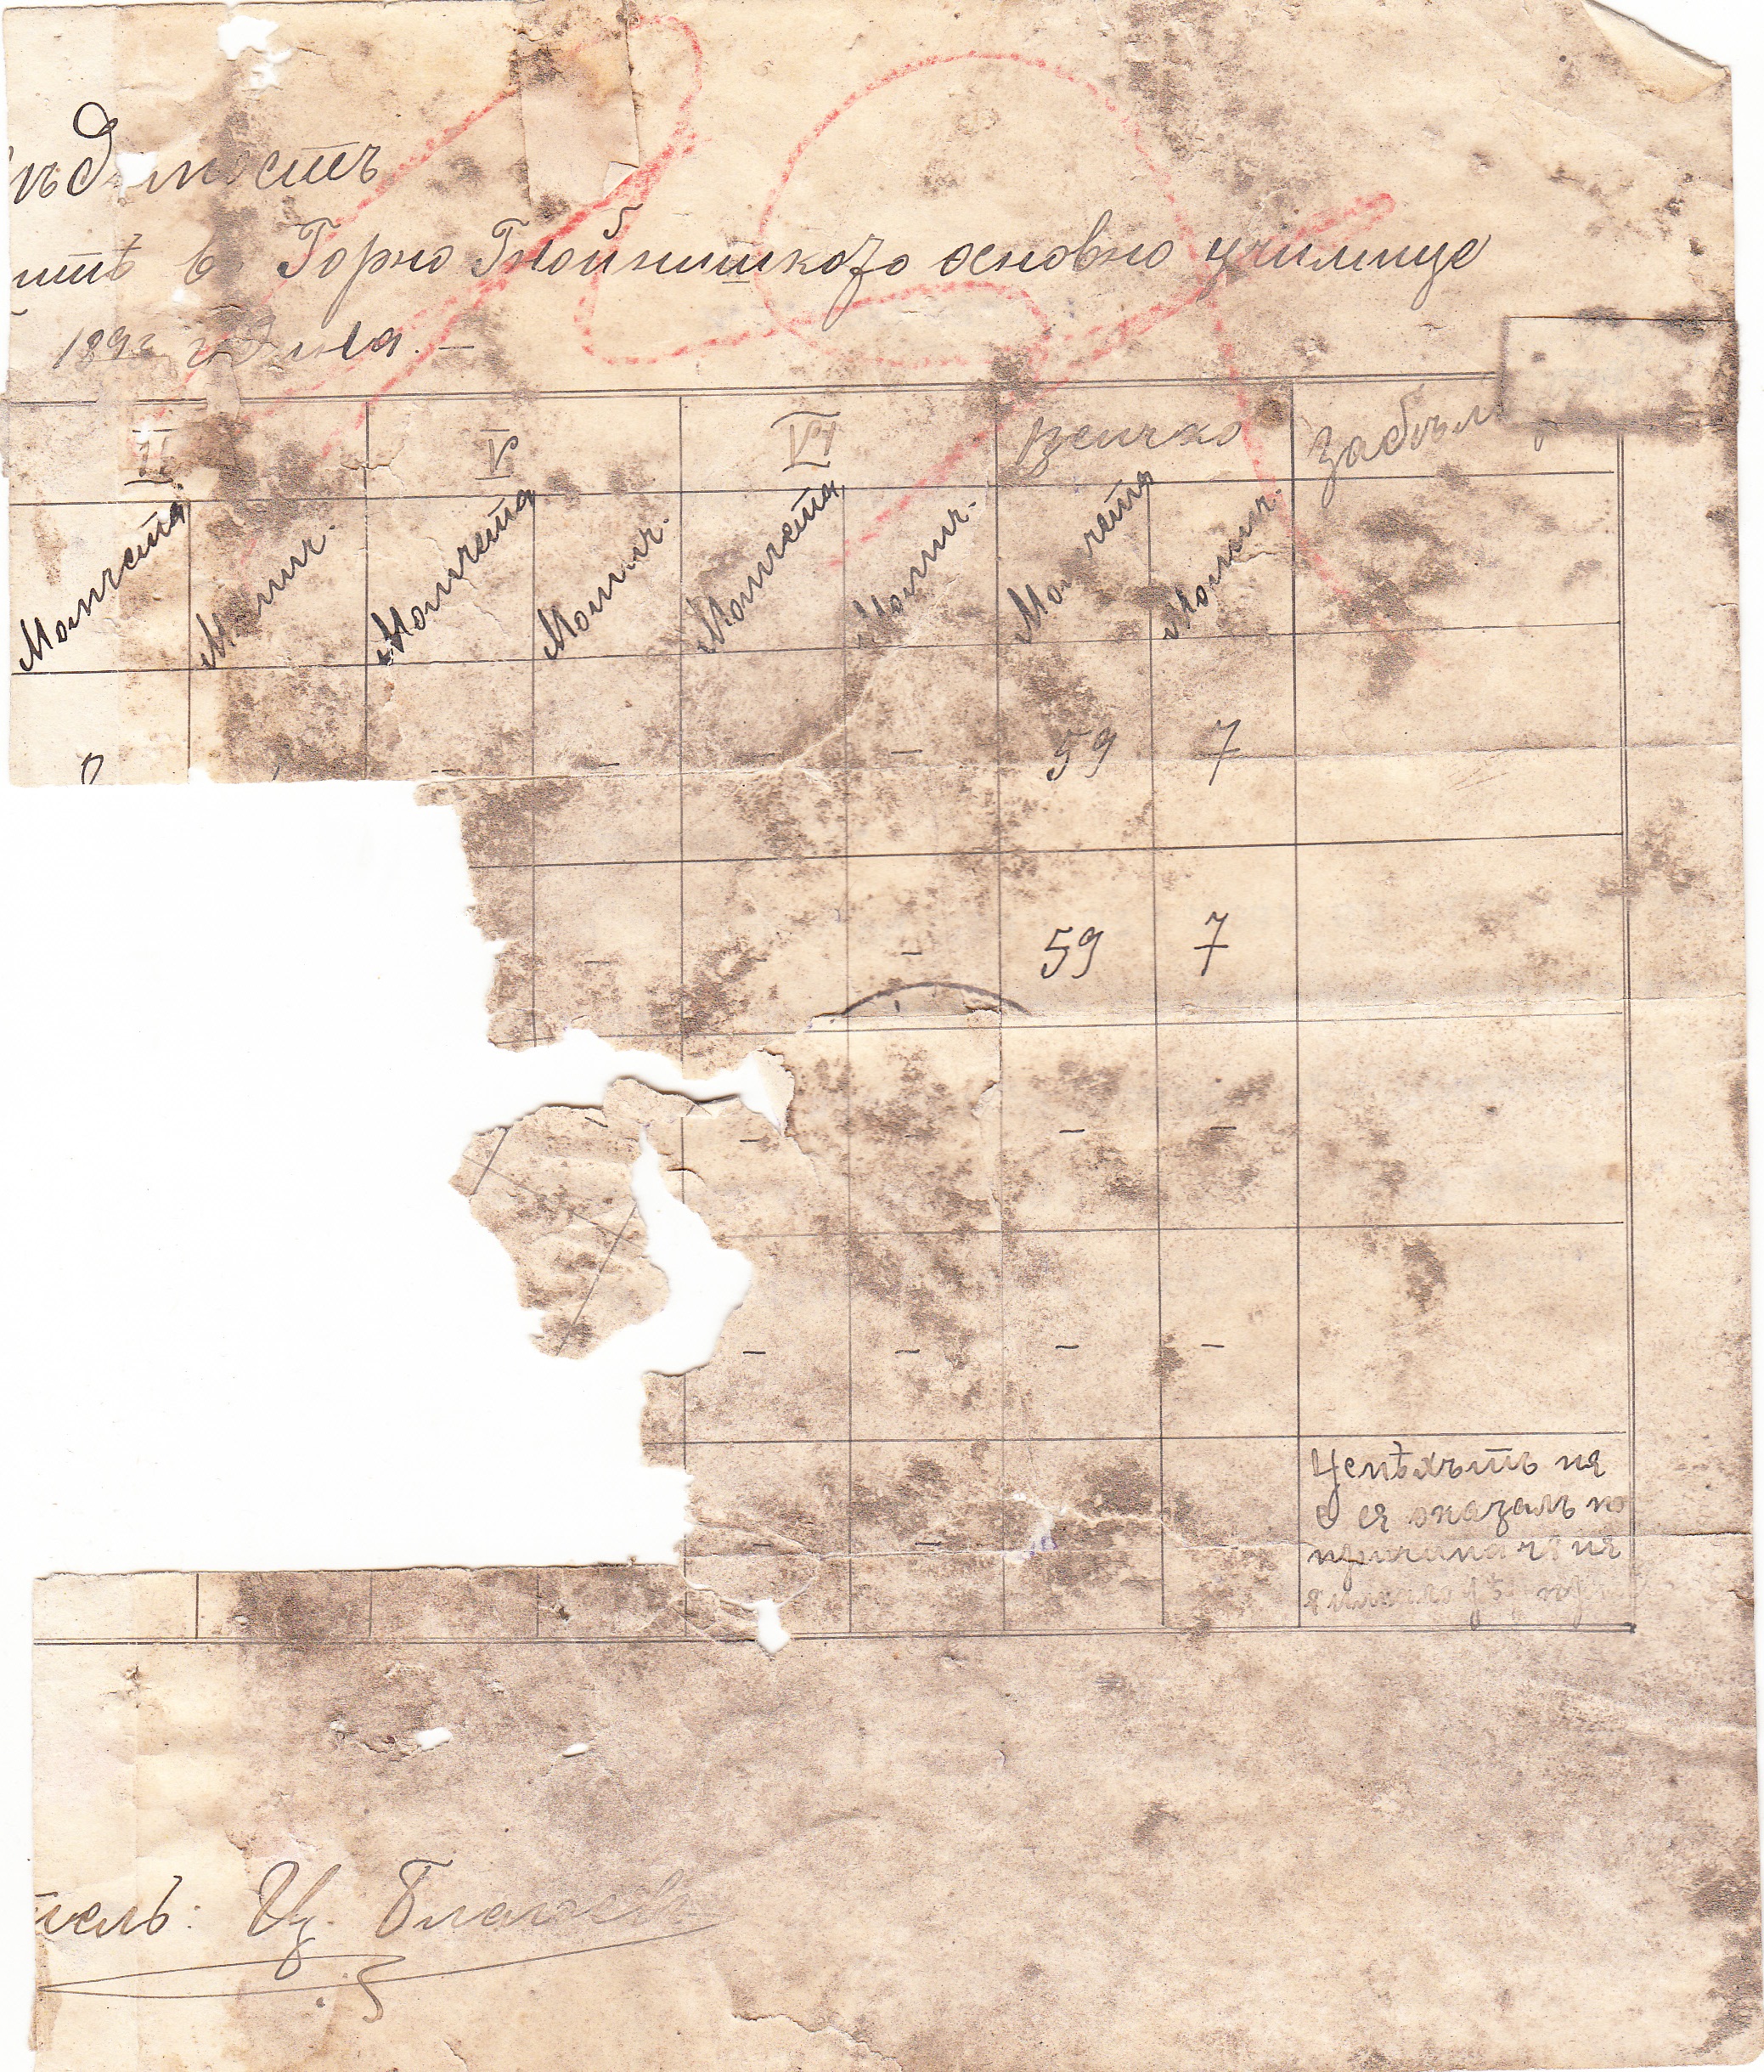 ѣдомость
итѣ в Горно Гнойнишкото основно училище
189 година. –
V VI Всичко Забѣл
Момчета Момич. Момчета Момич. Момчета Момич. Момчета Момич.
– – – – 59 7
– – 59 7
– – – –
– – – –
– –
Успѣхътъ не
е ся оказалъ по
причина че не
тель: Цз. Благоев